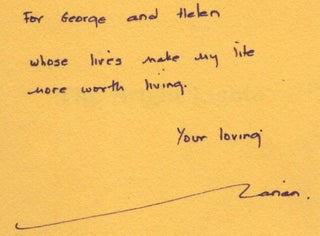 For George and Helen
whose lives make my life
more worth living.
Your loving
Marian.